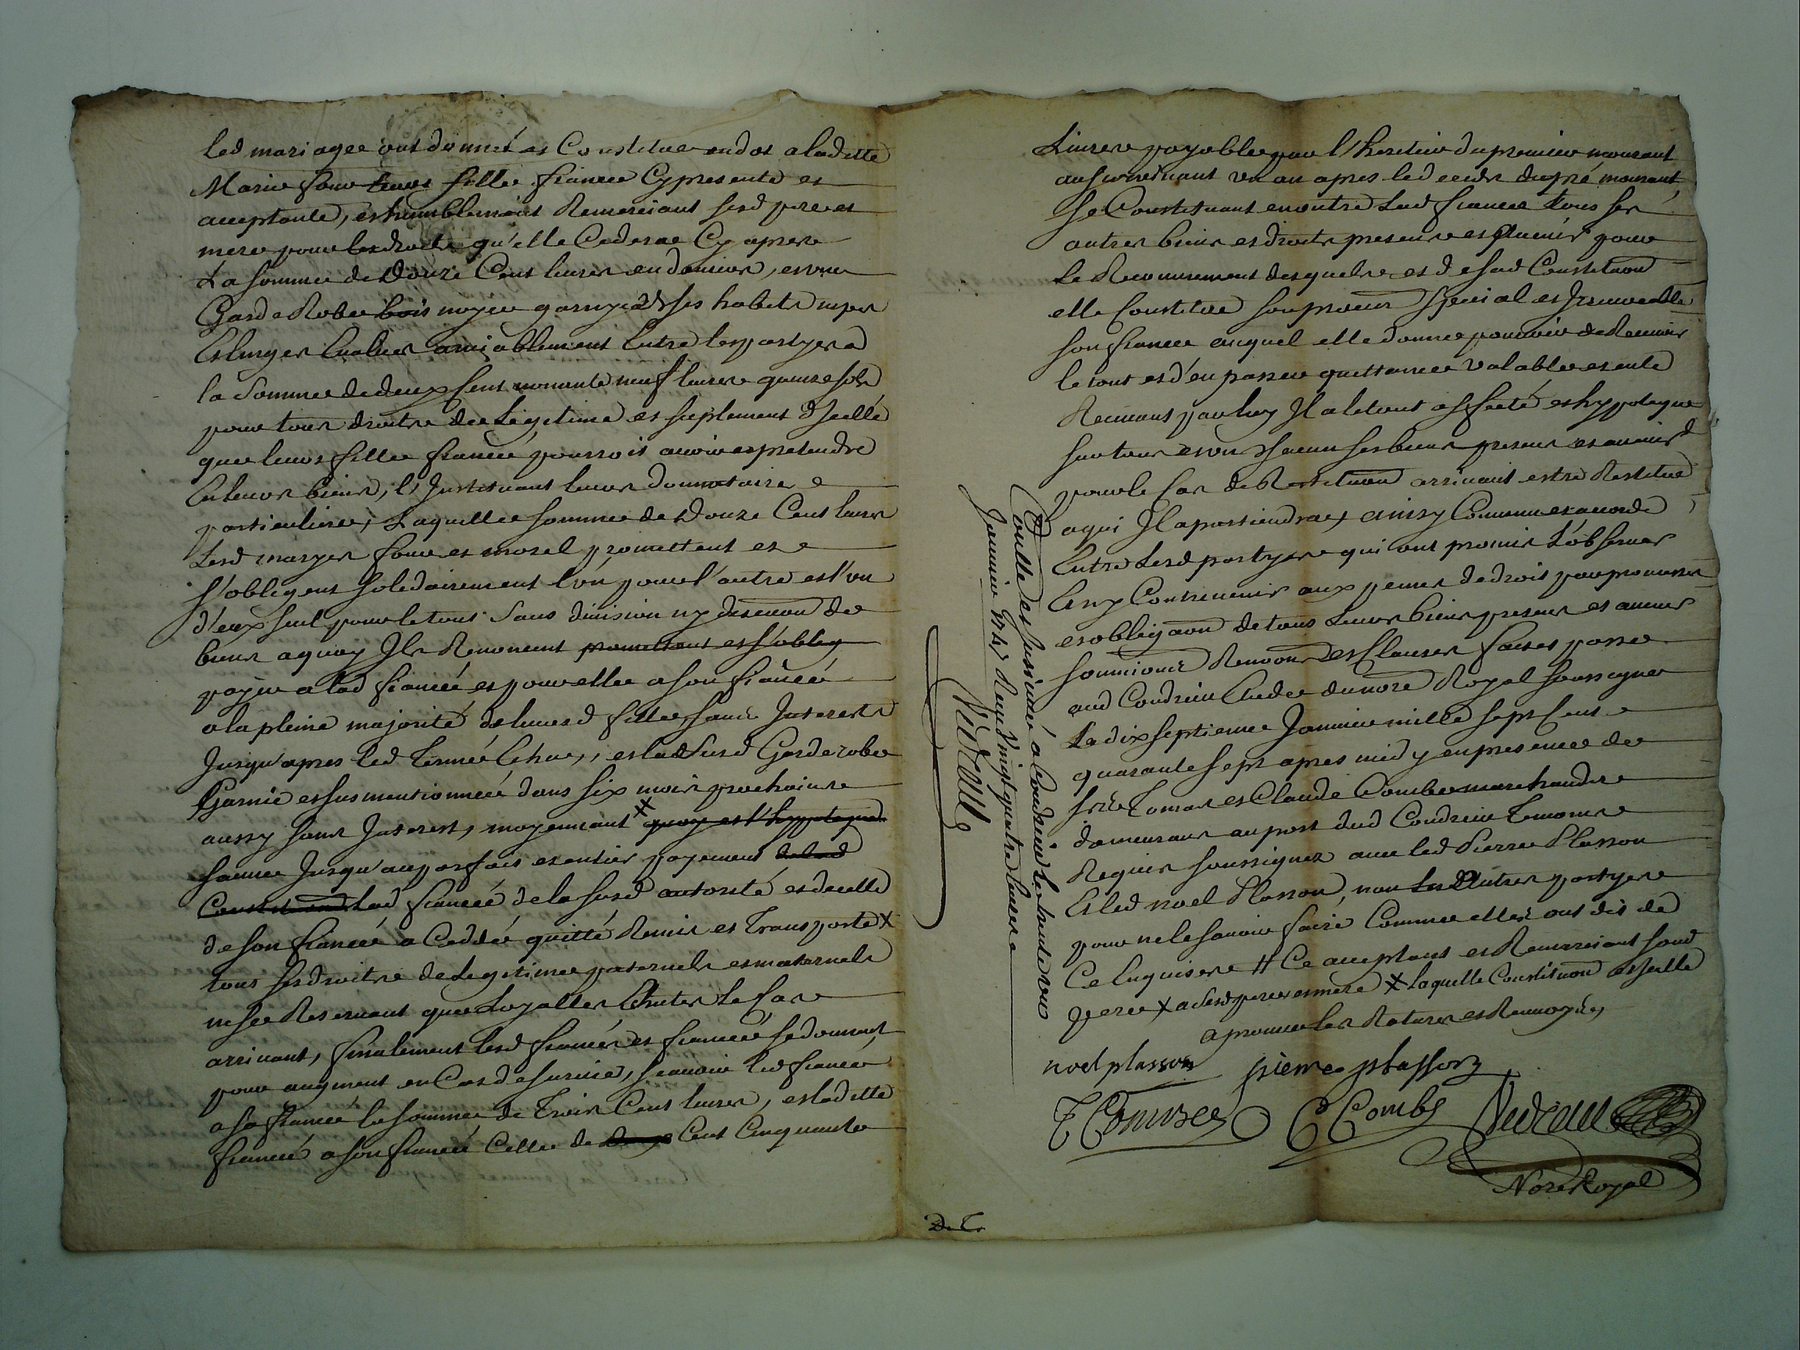 led mariagee ont donné et Constitue en dot a laditte
Marie faure leurs fillee fiancee Cy presente et
acceptante, et humblement Remerciant sesd pere et
mere pour les droits qu'elle Cedera Cy apres
La somme de Douze Cent livres en deniers, et une
Garderobee bois noyer garnye de ses habits nipes
et linges Evaluer amiablement Entre les partyes a
la somme de deux Cent nonante neuf livres quinze sols
pour tous droitre de Legitime et suplement d'Icelle
que leurs fillee fiancée pourroit avoir et pretendre
En leurs biens, l'Instituant leurs donnataire
particuliere, Laquellee somme de Douze Cent livres
Lesd maryes faure et morel promettent et
s'obligent solidairement l'un pour l'autre et l'un
d'eux seul pour le tout sans division ny discution de
biens a quoy Ils Renoncent promettent et s'oblig
payer a lad fiancée et pour ellee a son fiancée
a la pleine majorité de leursd fillee sans Interests
Jusqu'apres led Terme Echu, et lad susd Garderobe
Garnie et susmentionnéé dans six mois prochains
aussy sans Interest, moyennant x quoy et l'hypotequed
sauvee Jusqu'au parfait et entier payement delad
Constitution lad fiancéé de la susd autorité et de celle
de son fiancéé a Ceddée quitté Remis et Transporté x
tous ses droitre de Legitimee paternels et maternels
ne see Reservant que Loyalles Echutes le Cas
arrivant, finalement lesd fiancés et fiancee se donnent
pour augment en Cas de survie, scavoir led fiancee
a sa fiancéé la somme de Trois Cent livres, et laditte
fiancéé a son fiancéé Cellee de Cent Cinquante
Livres payablee par l'heritier du premier mourant
au survivant un an apres led decedr du pré mourant,
Se Constituant en outre Lad fiancee tous ses
autres biens et droits presens et advenir pour
Le Recouvrement desquels et de sad Constituon
elle Constitue son procur special et Irrevocable
son fiancee auquel elle donnee pouvoir de Recevoir
le tout et d'en passer quittance valablee et en le
Recevant par luy Il a le tout affecté et hypotequé
sur tous et un chacun ses biens presens et avenird
pour le Cas de Restituon arrivant estre Restitué
a qui Il apartiendra, ainsy Convenu et accordé
Entre Lesd partyes qui ont promis L'observer
Et n'y Contrevenir aux peines de droit par promesses
et obligaon de tous Leurs biens presens et avenir
soumions Renoons et Clauses faites passé
aud Condrieu Etude du nore Royal soussigné
Le dix septieme Janvier mille sept Cent
quarante sept apres midy en presence de
Tomas et Claude Combe marchandre
demeurans au port dud Condrieu Temoins
Requis soussignez avec led Pierre Plasson
Et led noel Plasson, non Les Autres partyes
pour ne le savoir faire Comme elles ont dit de
Ce Enquises # Ce acceptant et Remerciant sond
peree x a sesd pere et mere x laquelle Constituon et Icelle
aprouvee les Ratures et Renvoyés,
noel plasson pierre plasson
T Combe C Combe
Nore Royal
Controllé et Insinué a Condrieu le trente un
Janvier 1747 Reçu Vingt quatre livres
D. C.